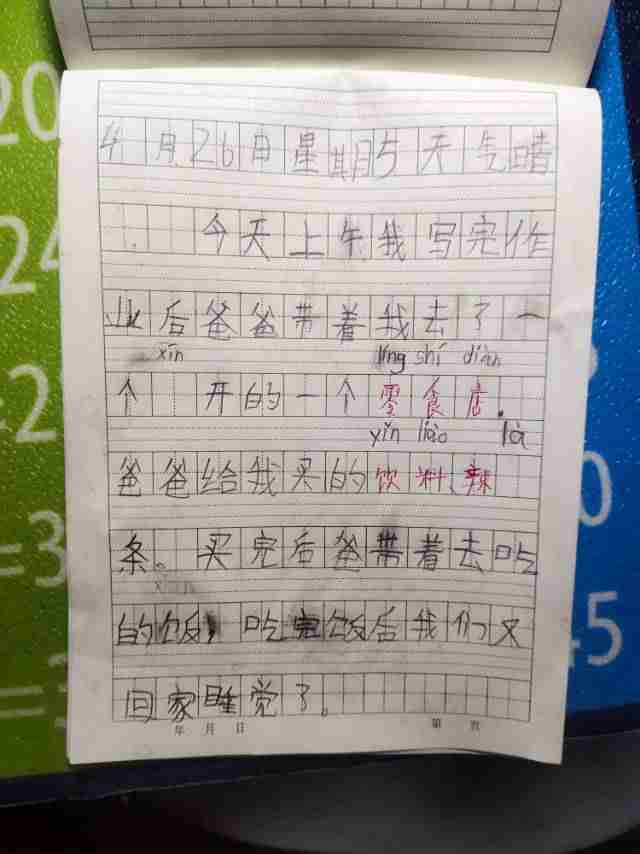 4月26日星期5天气晴
今天上午我写完作
业后爸爸带着我去了一
xīn líng shí diàn
个 开的一个零食店.
yǐn liào là
爸爸给我买的饮料、辣
条。买完后爸带着去吃
的饭，吃完饭后我们又
回家睡觉了。
年 月 日 第 页